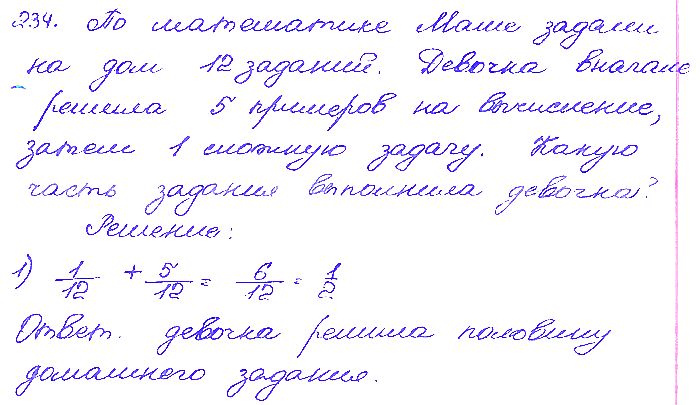 234. По математике Маше задали
на дом 12 заданий. Девочка вначале
решила 5 примеров на вычисление,
затем 1 сложную задачу. Какую
часть задания выполнила девочка?
Решение:
1) 1/12 + 5/12 = 6/12 = 1/2
Ответ. девочка решила половину
домашнего задания.